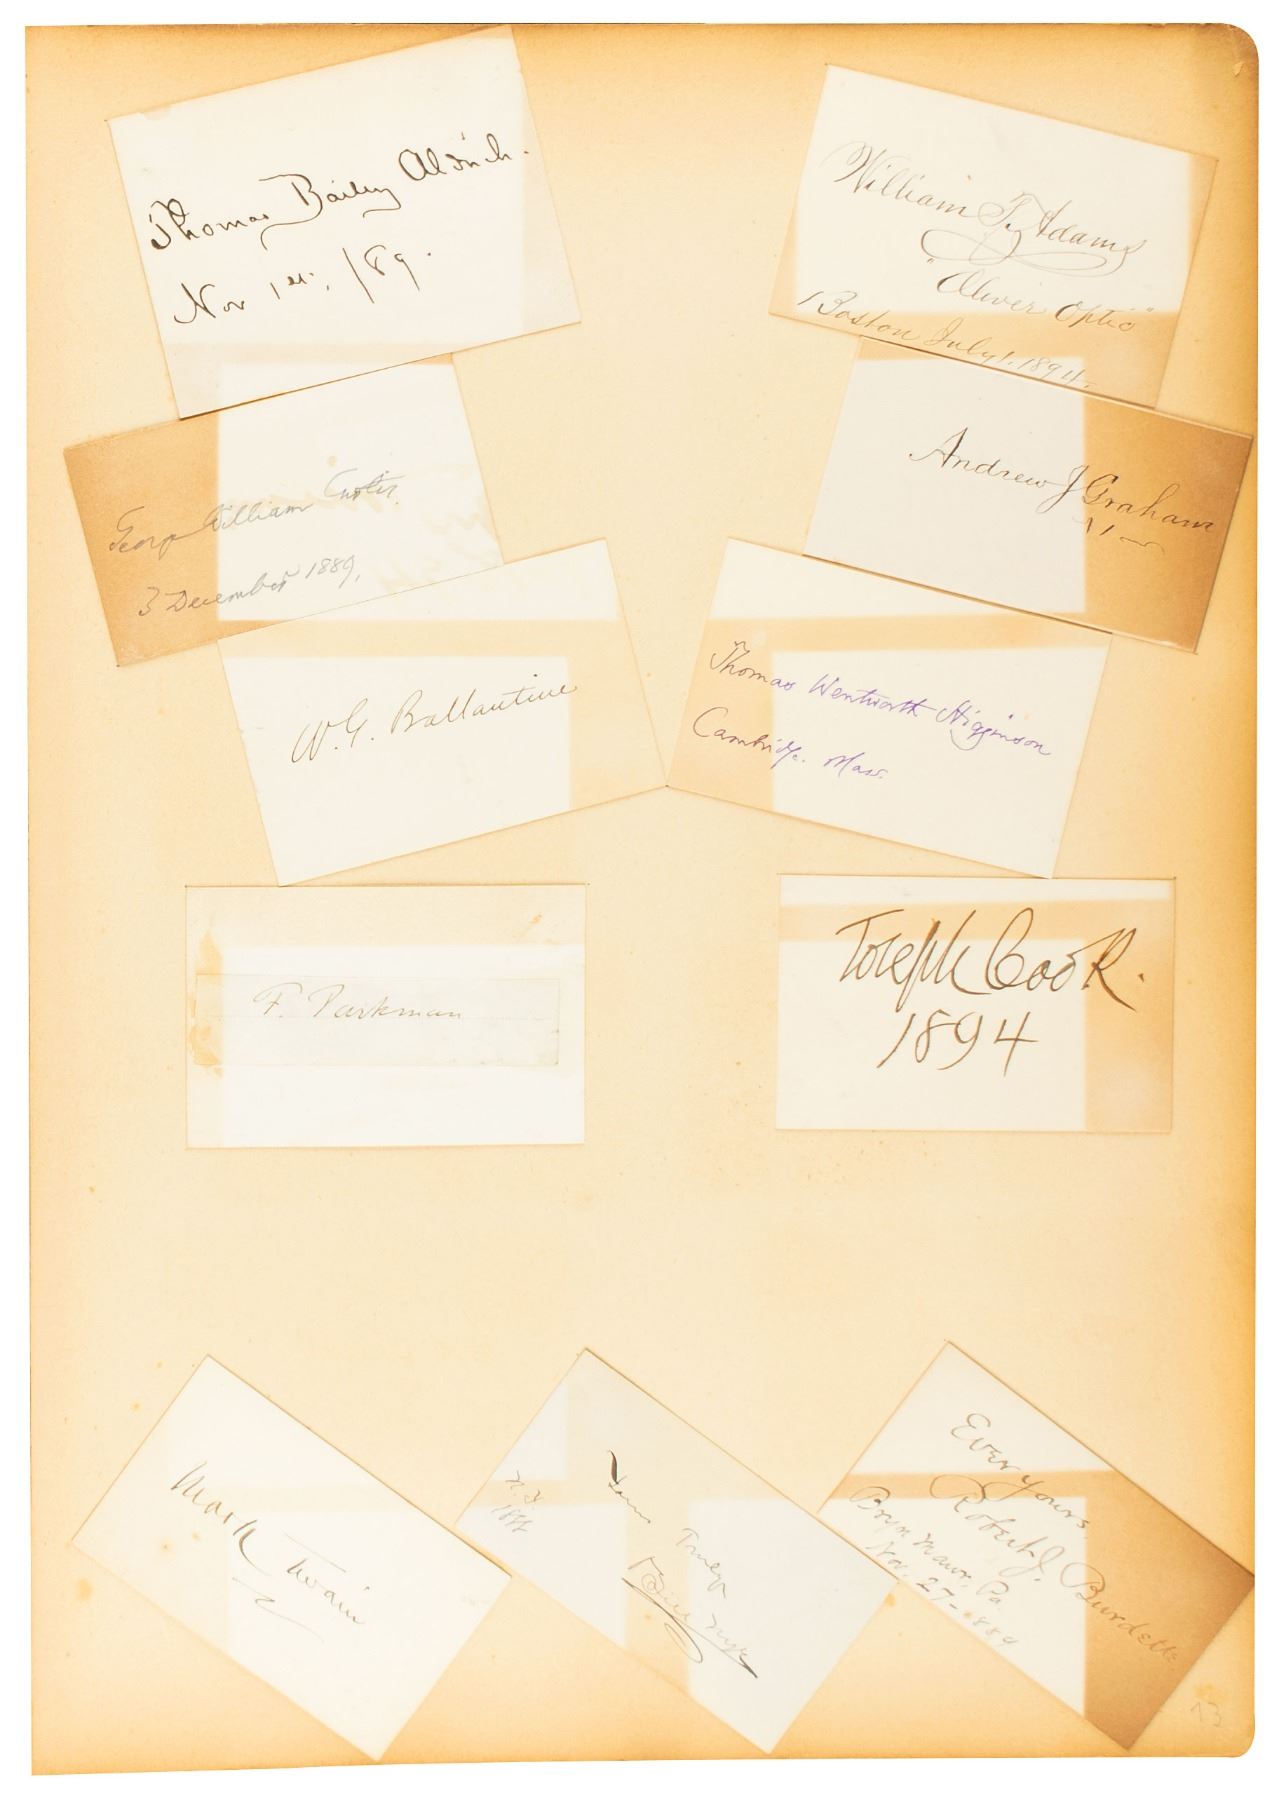 Thomas Bailey Aldrich.
Nov 1st, 189.
William T. Adams
"Oliver Optic"
Boston July 1, 1894.
George William Curtis.
3 December 1889.
Andrew J Graham
W. G. Ballantine
Thomas Wentworth Higginson
Cambridge. Mass.
F. Parkman
Joseph Cook.
1894
Mark Twain
N.Y.
Yours Truly
Bill Nye
Ever yours,
Robert J. Burdette
Bryn Mawr, Pa.
Nov. 27-1889
13